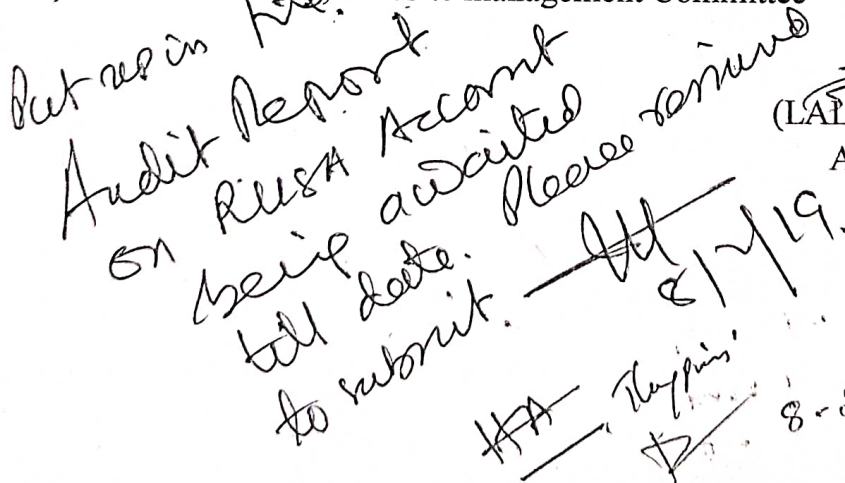 Management Committee
Put up in file.
Audit Report
on RUSA Account
being awaited
till date. Please remind
to submit.
8/2/19.
(LAL
A
HA
8-